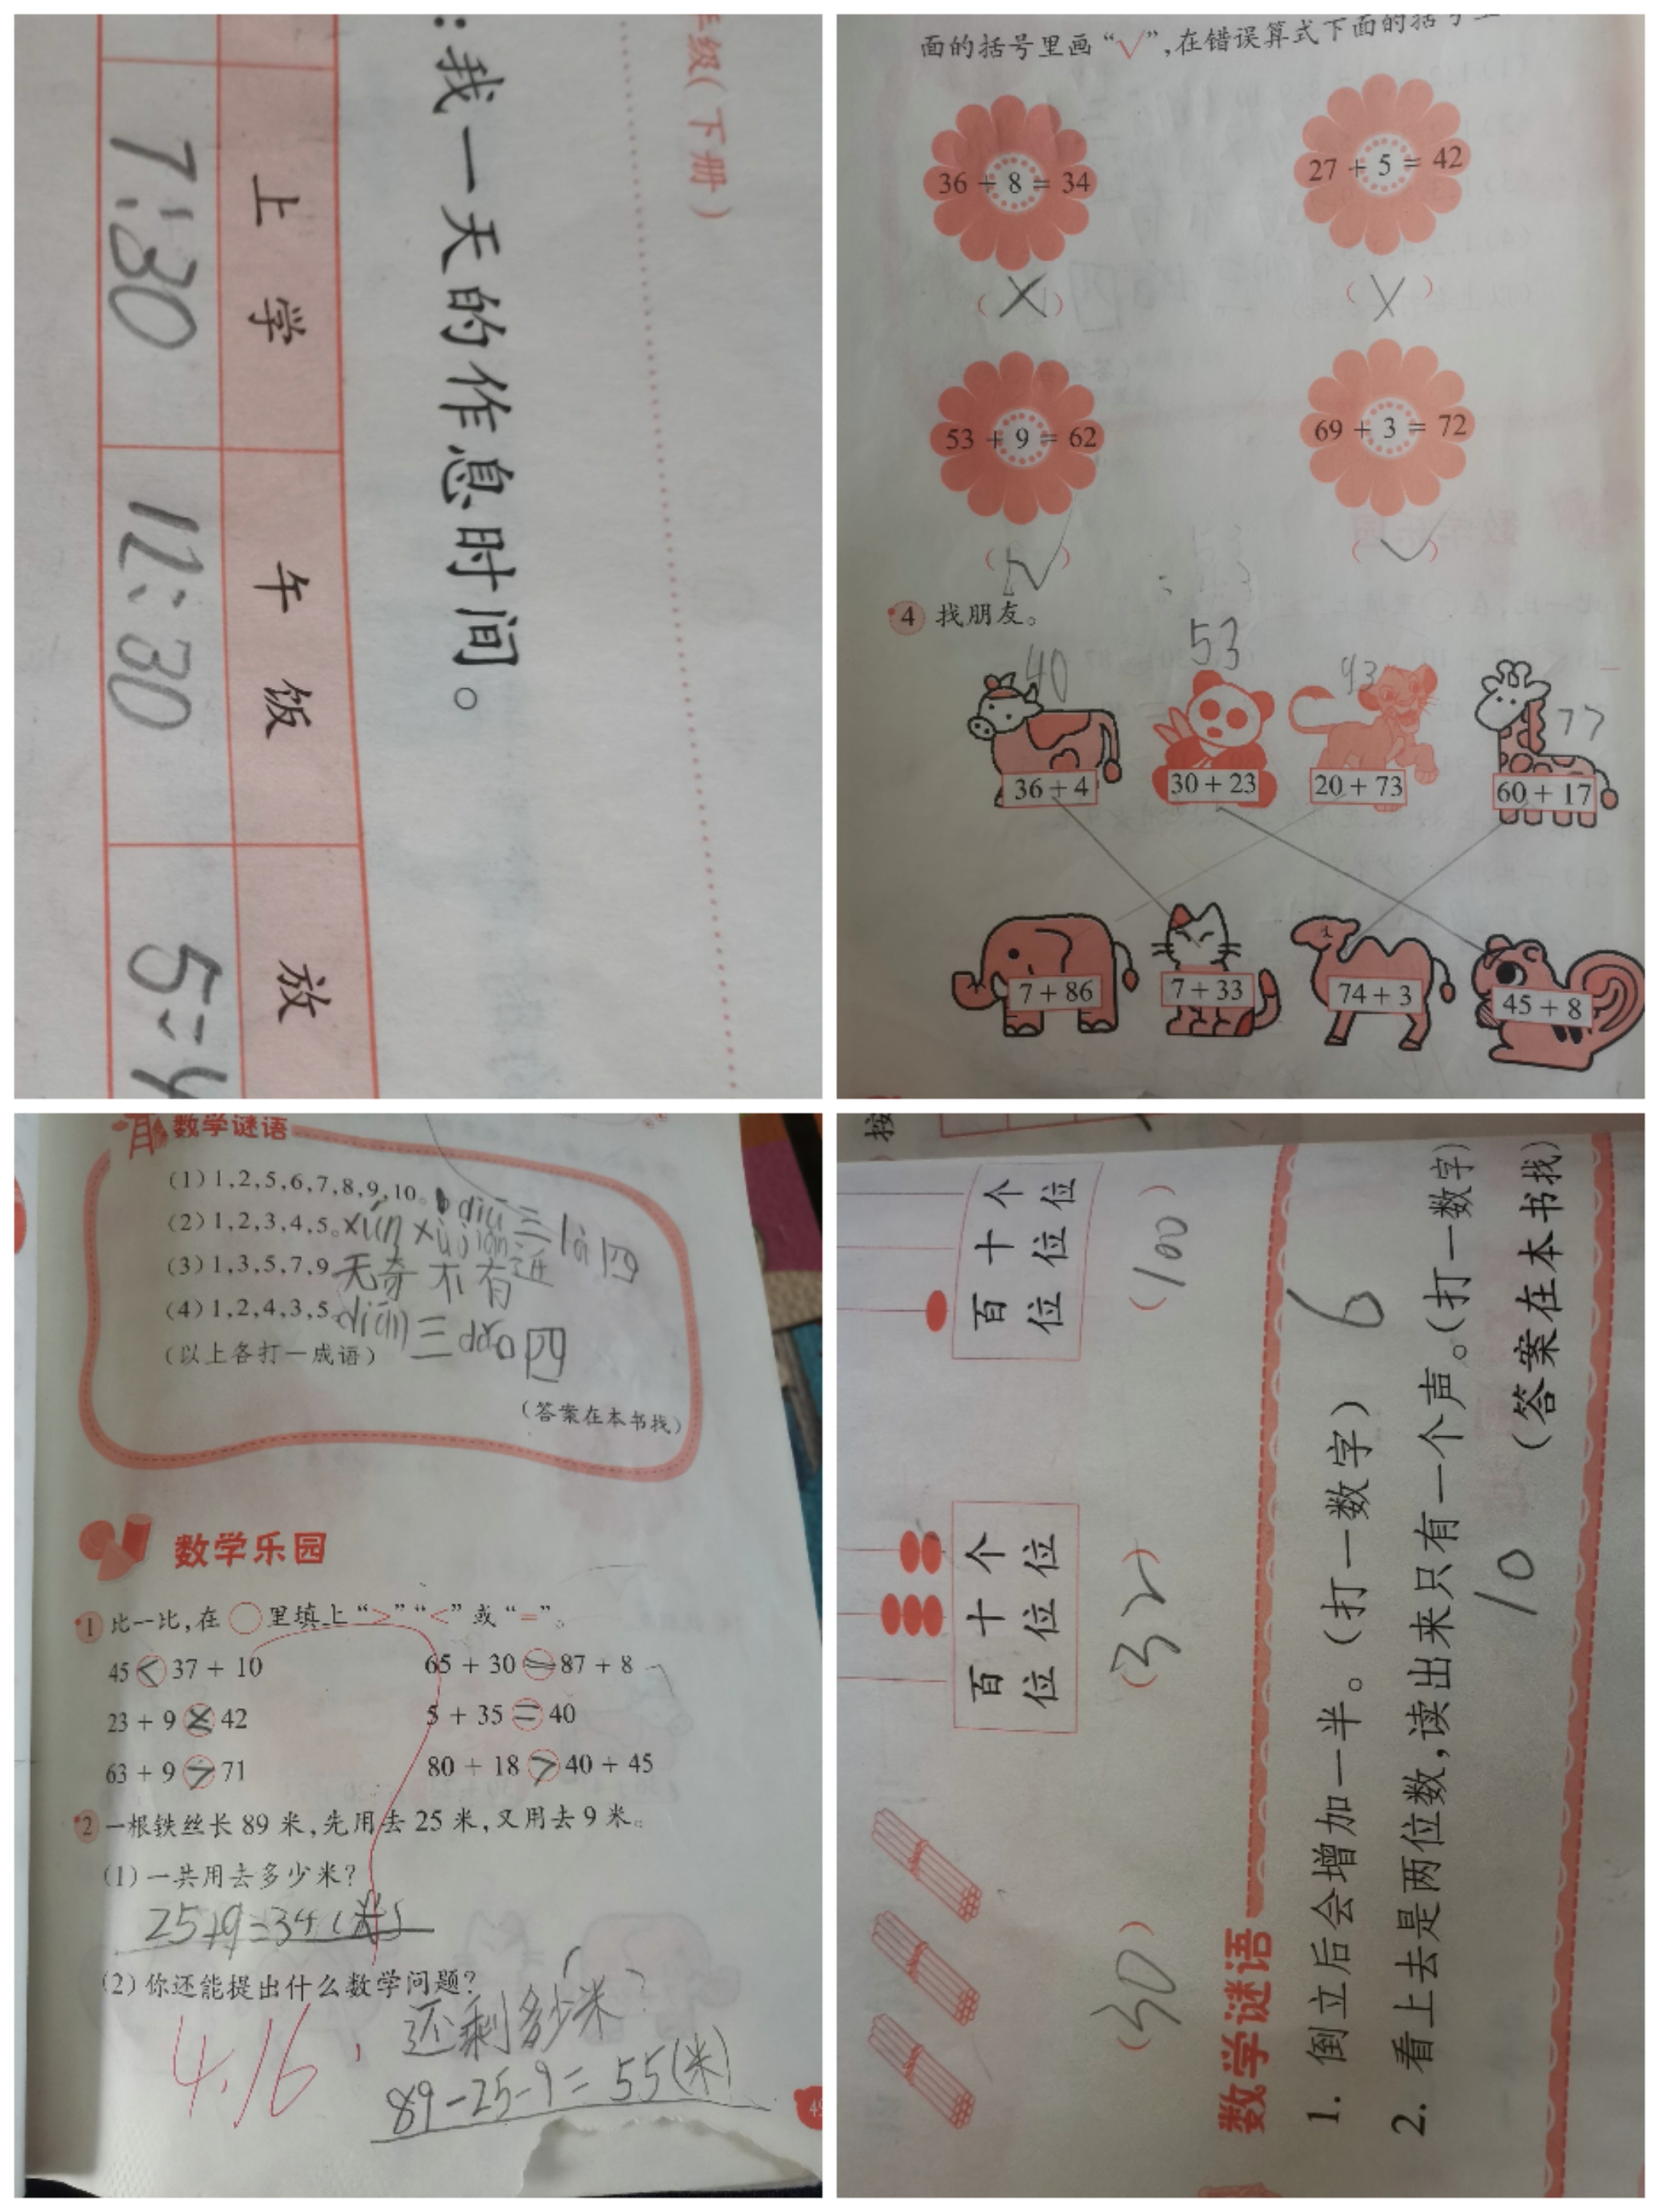 年级(下册)
:我一天的作息时间。
上 学
午 饭
放
7:30
12:30
5:4
面的括号里画“√”,在错误算式下面的括号里
36 + 8 = 34
27 + 5 = 42
(×)
(×)
53 + 9 = 62
69 + 3 = 72
(√)
(√)
4 找朋友。
40
53
93
77
36 + 4
30 + 23
20 + 73
60 + 17
7 + 86
7 + 33
74 + 3
45 + 8
数学谜语
(1) 1,2,5,6,7,8,9,10。diū 三 là 四
(2) 1,2,3,4,5。xún xù jiàn 进
(3) 1,3,5,7,9 无奇不有
(4) 1,2,4,3,5。diān 三 dǎo 四
(以上各打一成语)
(答案在本书找)
数学乐园
1 比一比,在○里填上“>”“<”或“=”。
45 < 37 + 10
65 + 30 = 87 + 8
23 + 9 < 42
5 + 35 = 40
63 + 9 > 71
80 + 18 > 40 + 45
2 一根铁丝长 89 米,先用去 25 米,又用去 9 米。
(1) 一共用去多少米?
25+9=34(米)
(2) 你还能提出什么数学问题?
还剩多少米?
89-25-9=55(米)
4.16
49
按
百位 十位 个位
百位 十位 个位
(30)
(32)
(100)
数学谜语
1. 倒立后会增加一半。(打一数字) 6
2. 看上去是两位数,读出来只有一个声。(打一数字)
10
(答案在本书找)